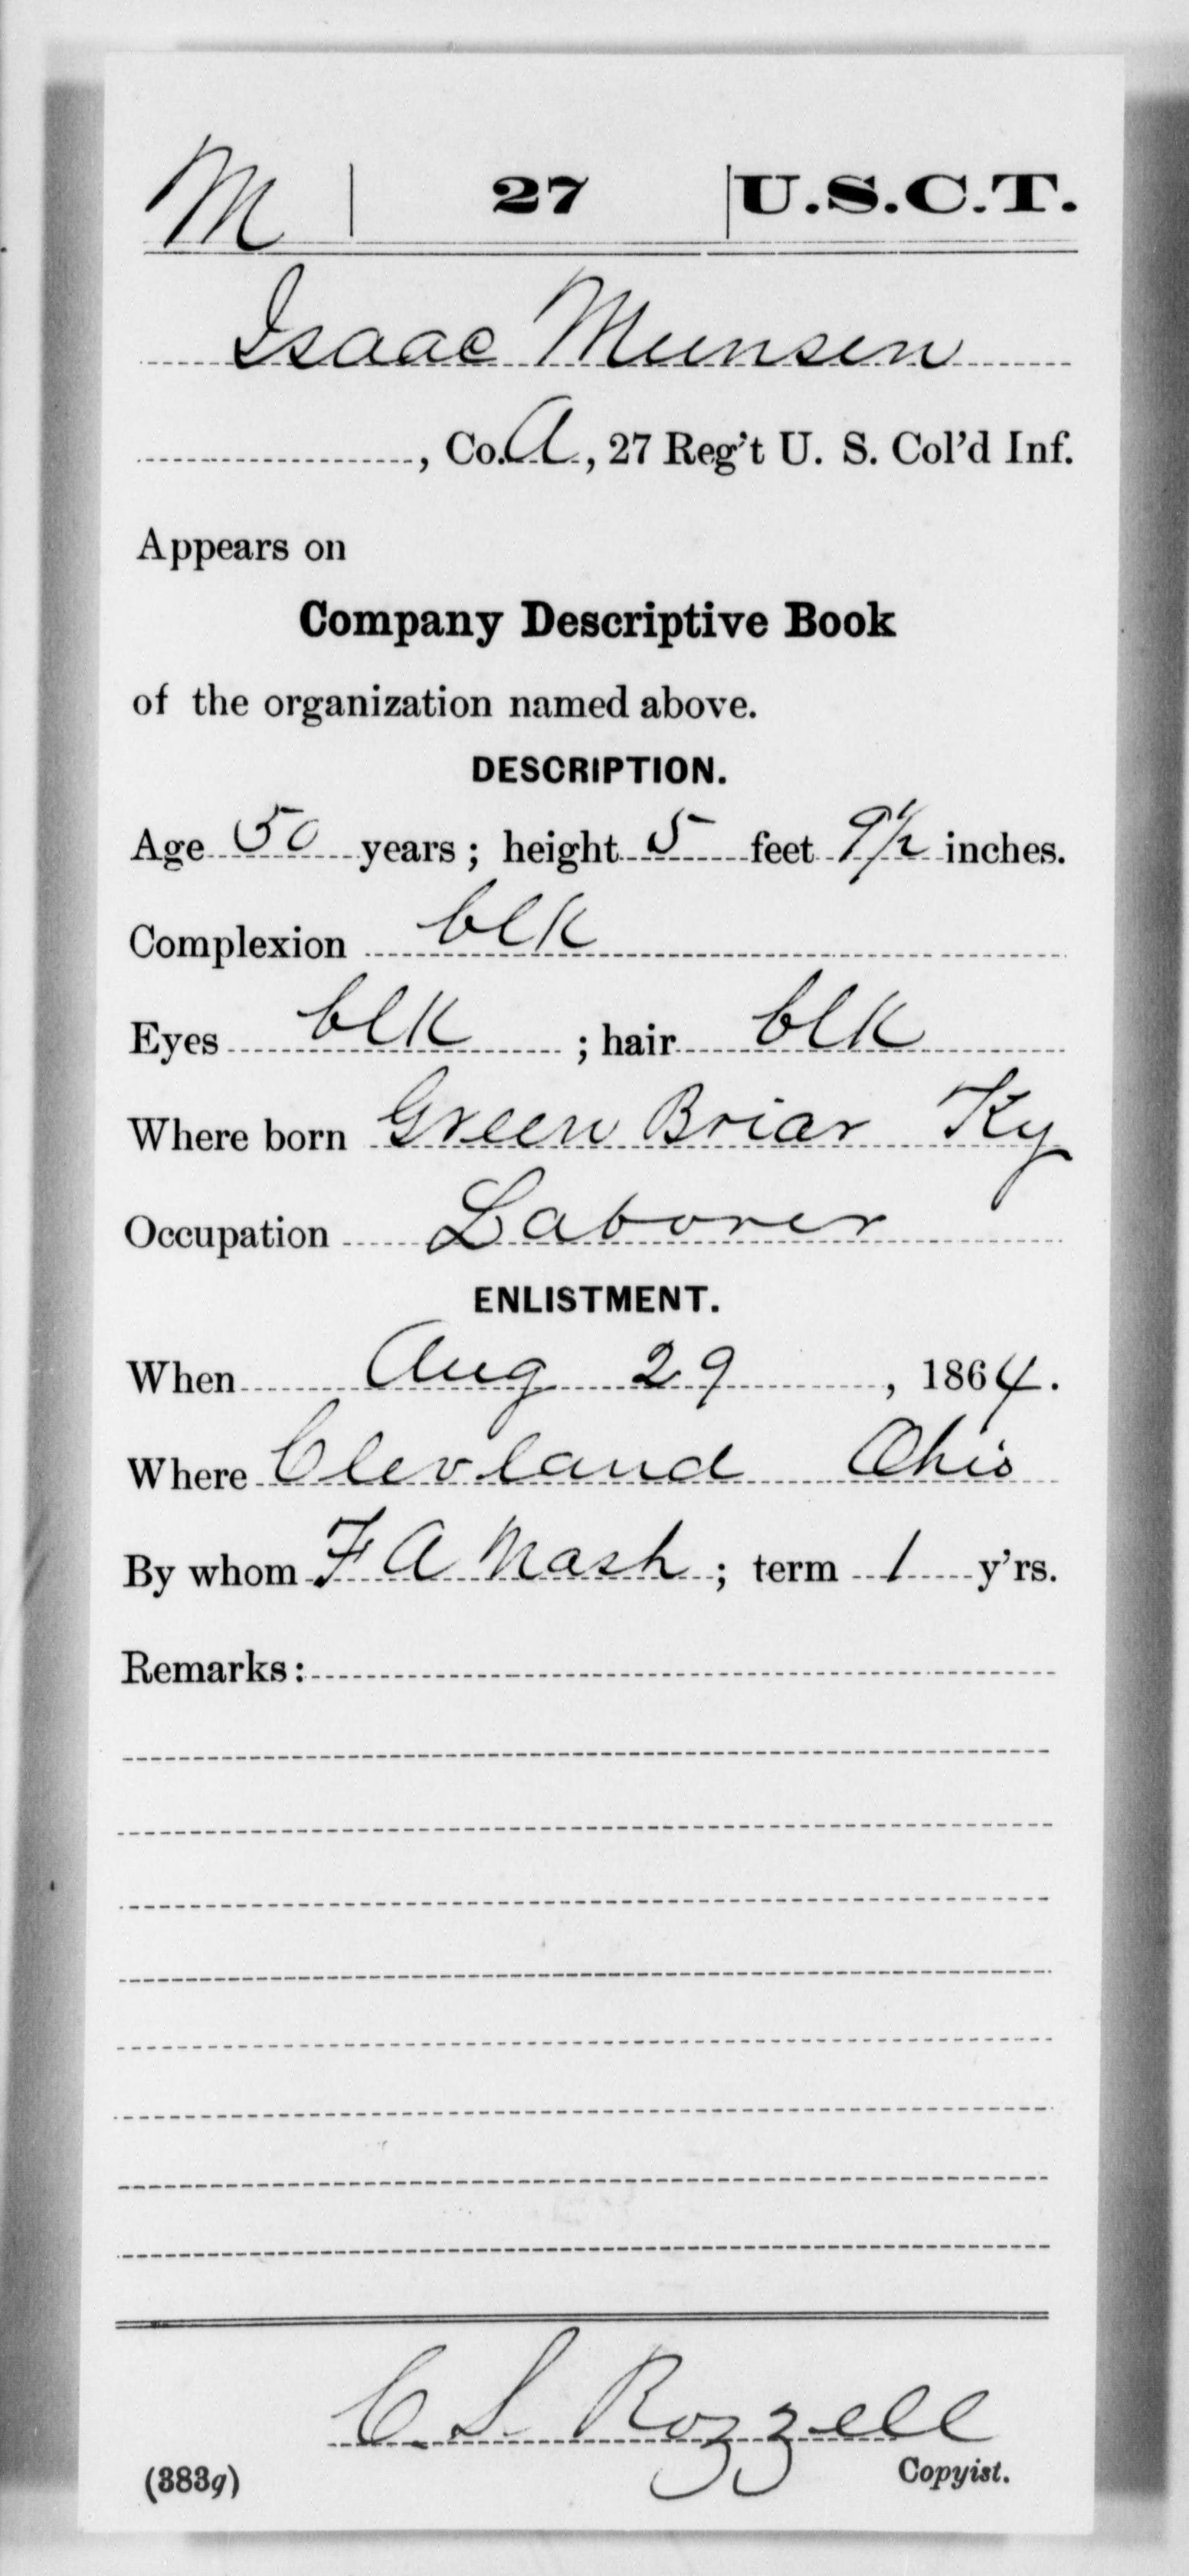 M | 27 | U.S.C.T.
Isaac Munsen
, Co. A, 27 Reg't U. S. Col'd Inf.
Appears on
Company Descriptive Book
of the organization named above.
DESCRIPTION.
Age 50 years; height 5 feet 9½ inches.
Complexion blk
Eyes blk ; hair blk
Where born Green Briar Ky
Occupation Laborer
ENLISTMENT.
When Aug 29, 1864.
Where Clevland Ohio
By whom F A Nash; term 1 y'rs.
Remarks:
C. S. Rozzell
Copyist.
(383g)